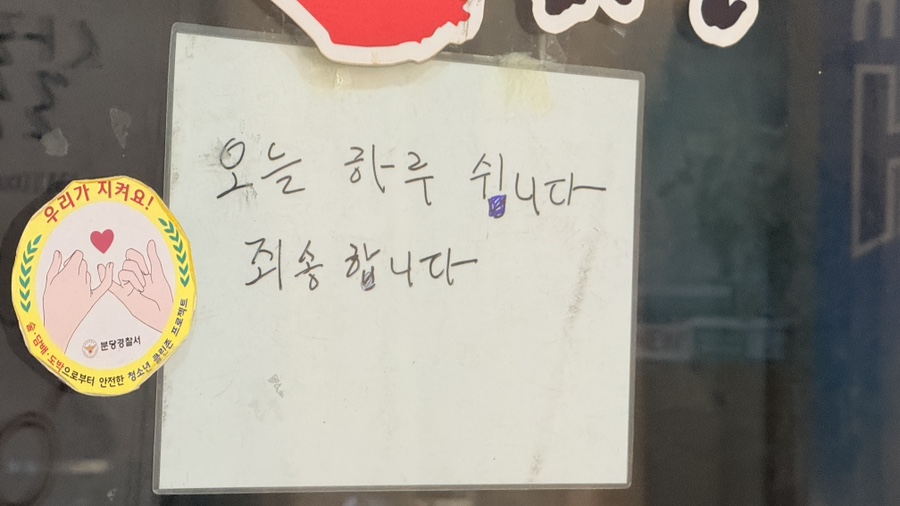 오늘 하루 쉽니다
죄송합니다
우리가 지켜요!
분당경찰서
술·담배·도박으로부터 안전한 청소년 클린존 프로젝트